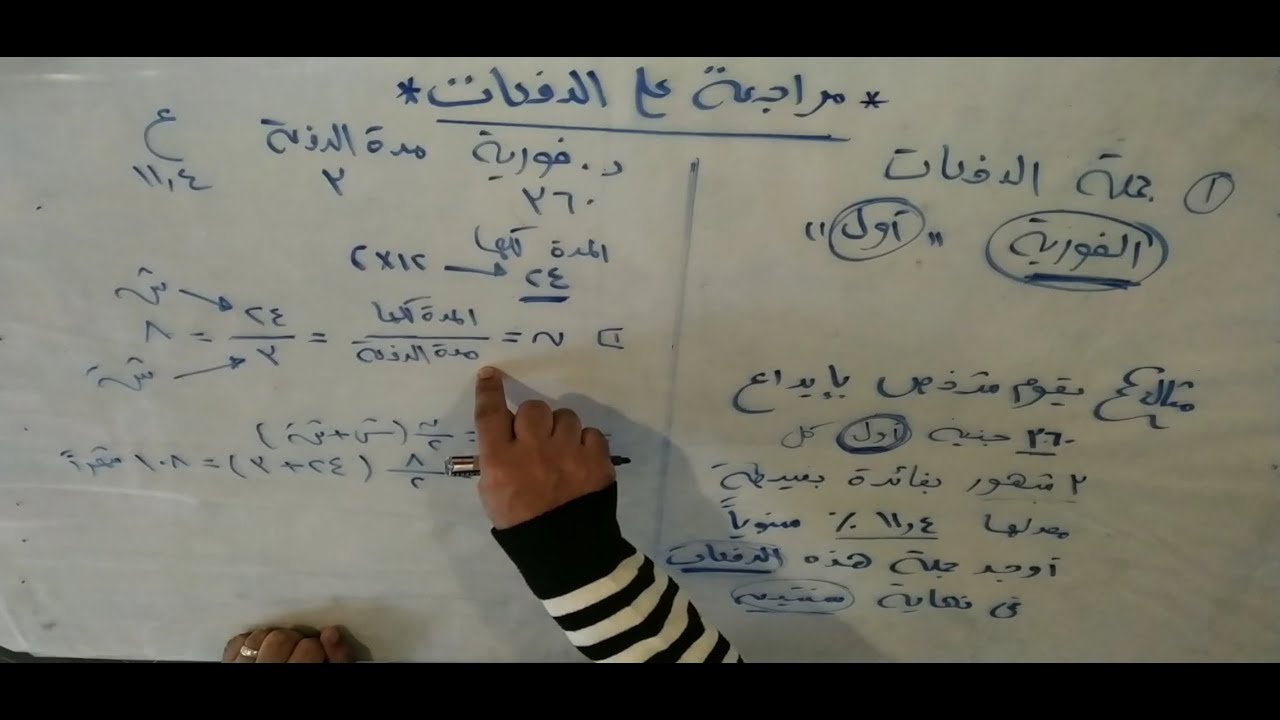 * مراجعة على الدفعات *
① جملة الدفعات
الفورية "أول"
مثال يقوم شخص بإيداع
٣٦٠ جنيه أول كل
٣ شهور بفائدة بسيطة
معدلها ١١,٤ % سنوياً
أوجد جملة هذه الدفعات
فى نهاية سنتين
د. فورية مدة الدفعة ع
٣٦٠ ٣ ١١,٤
المدة كلها
٢٤ ← ١٢×٢
١ ن = المدة كلها / مدة الدفعة = ٢٤ / ٣ = ٨
= ن / ٢ (ش + ش)
٨ / ٢ (٢٤ + ٣) = ١٠٨ شهراً